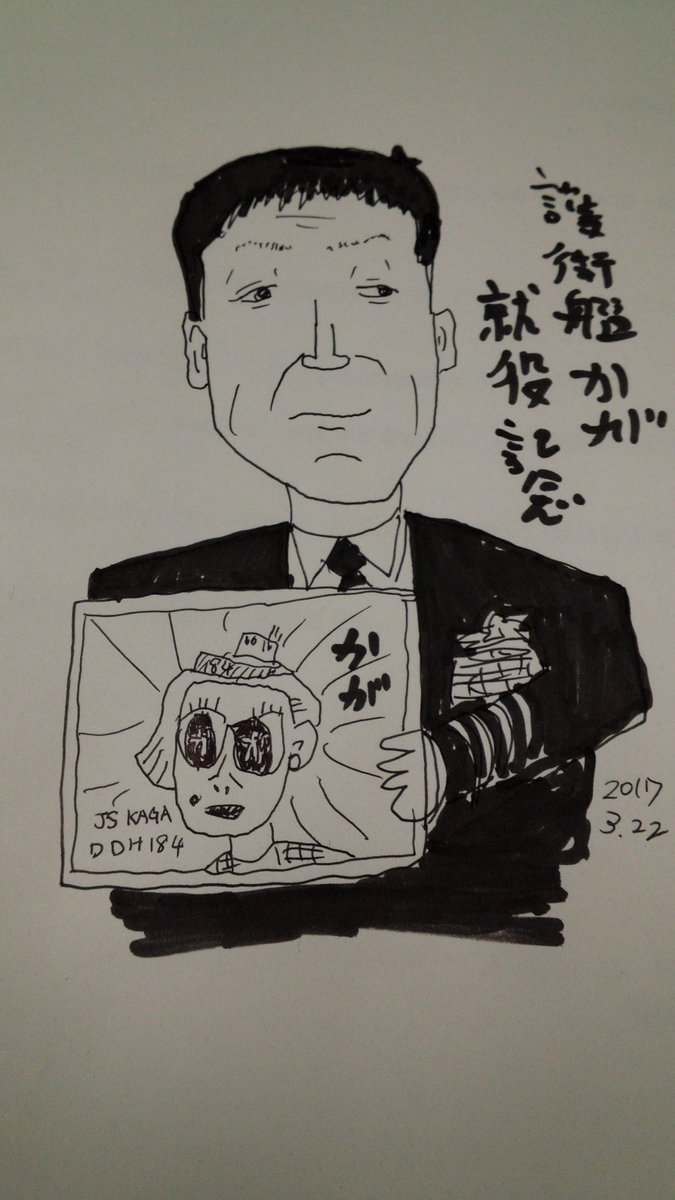 護衛艦かが
就役記念
184
かが
カ ガ
JS KAGA
DDH184
2017
3.22